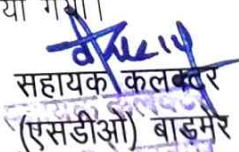 या गया।
सहायक कलक्टर
(एसडीओ) बाड़मेर